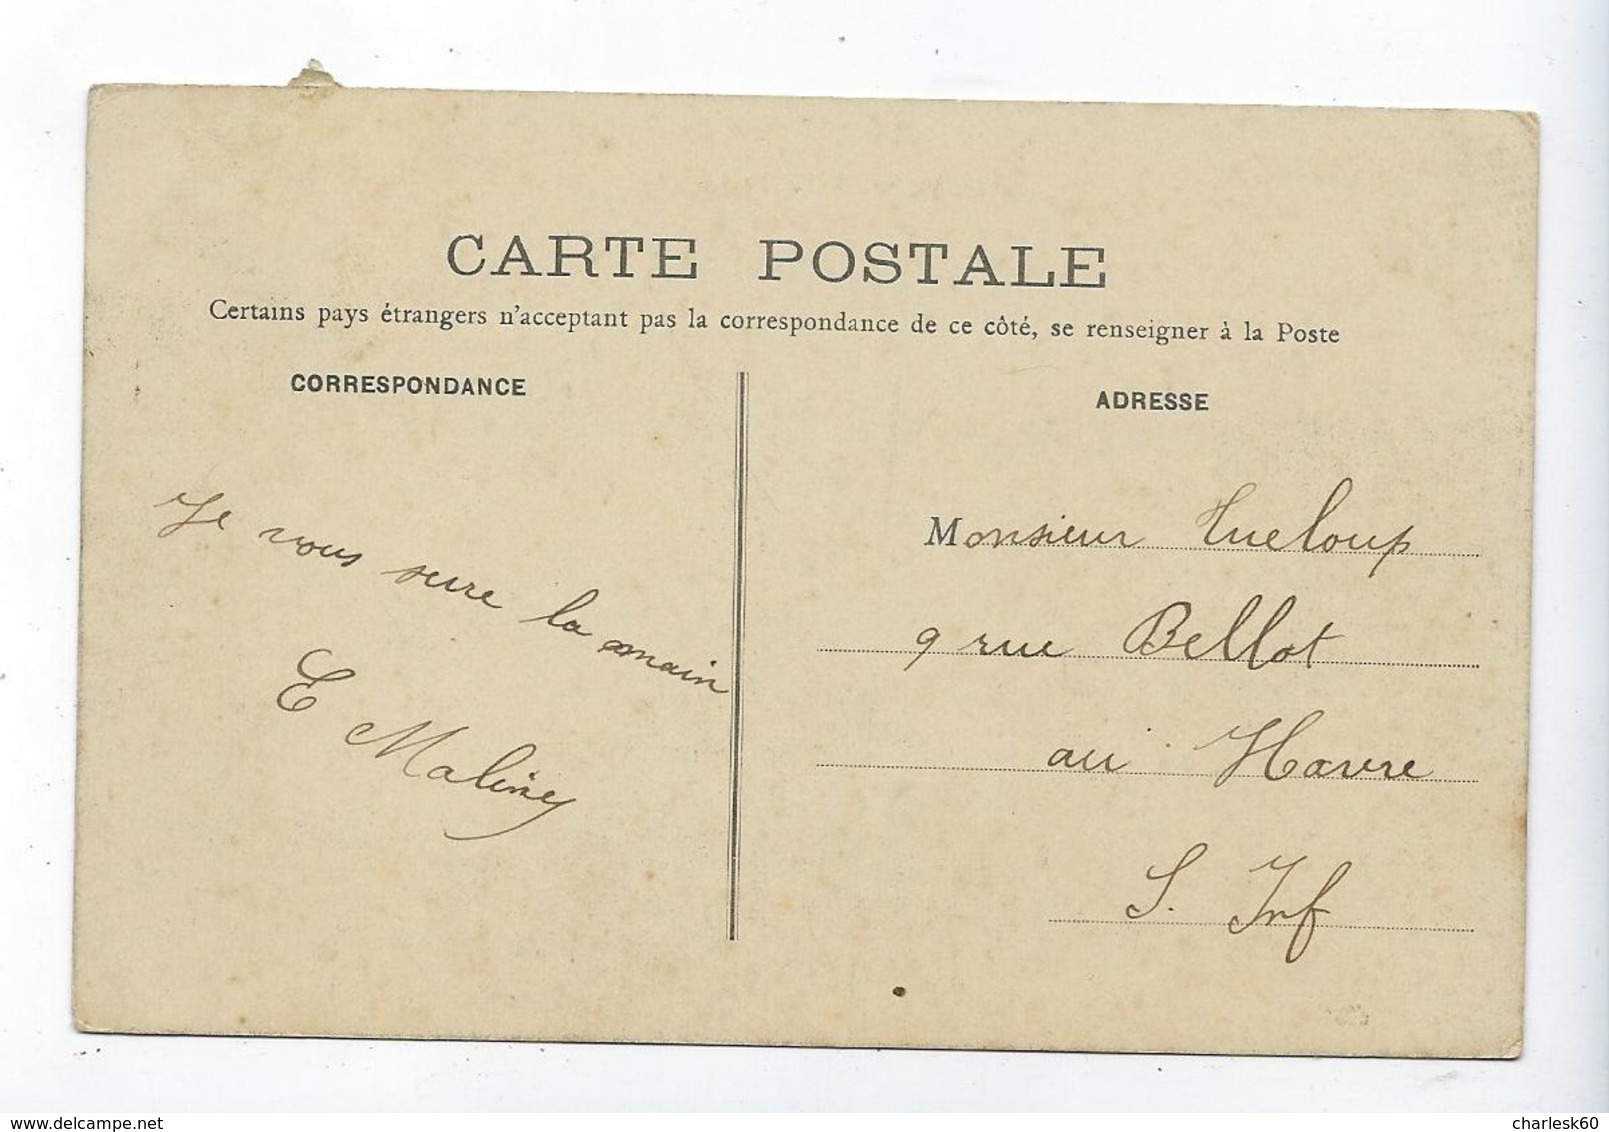 CARTE POSTALE
Certains pays étrangers n'acceptant pas la correspondance de ce côté, se renseigner à la Poste
CORRESPONDANCE
Je vous serre la main
E Maliney
ADRESSE
Monsieur Tueloup
9 rue Bellot
au Havre
S. Inf
delcampe.net
charlesk60